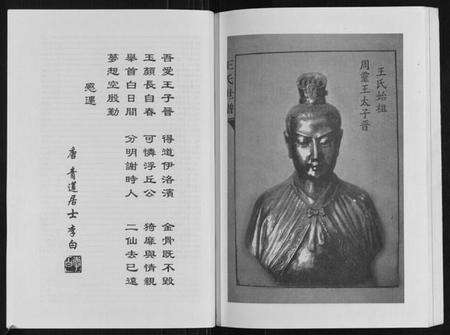 王氏始祖
周靈王太子晉
吾愛王子晉 得道伊洛濱 金骨既不毀
玉顏長自春 可憐浮丘公 猗靡與情親
舉首白日間 分明謝時人 二仙去已遠
夢想空殷勤
感遇
唐 青蓮居士 李白